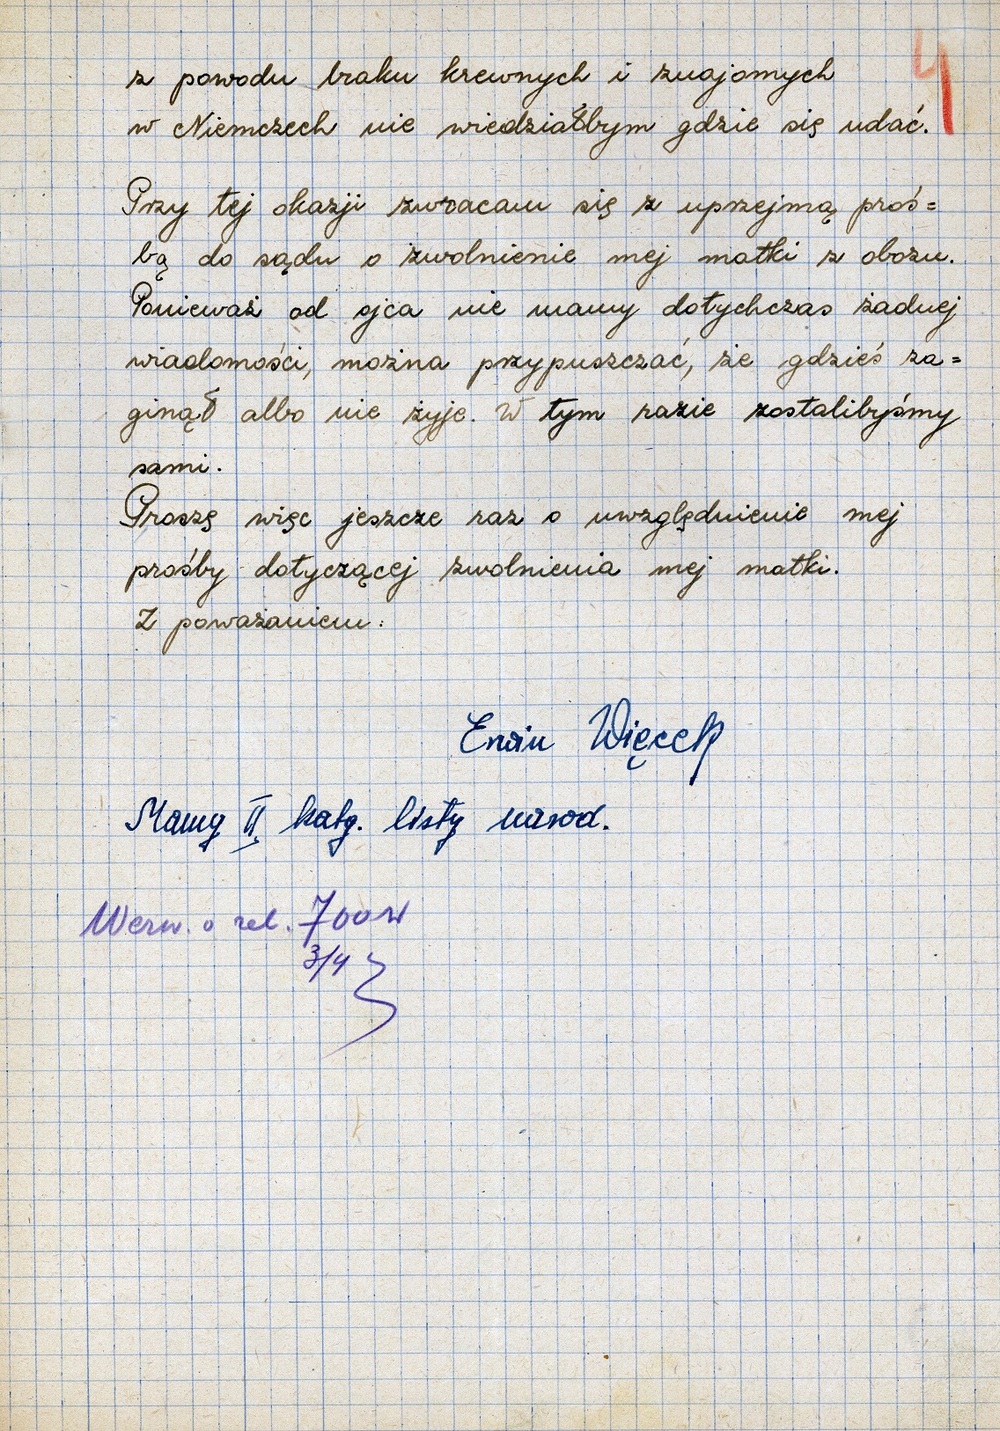 4
z powodu braku krewnych i znajomych
w Niemczech nie wiedziałbym gdzie się udać.
Przy tej okazji zwracam się z uprzejmą proś=
bą do sądu o zwolnienie mej matki z obozu.
Ponieważ od ojca nie mamy dotychczas żadnej
wiadomości, można przypuszczać, że gdzieś za=
ginął albo nie żyje. W tym razie zostalibyśmy
sami.
Proszę więc jeszcze raz o uwzględnienie mej
prośby dotyczącej zwolnienia mej matki.
Z poważaniem:
Erwin Więcek
Mamy II katg. listy narod.
Wezw. o zel. 700
3/4